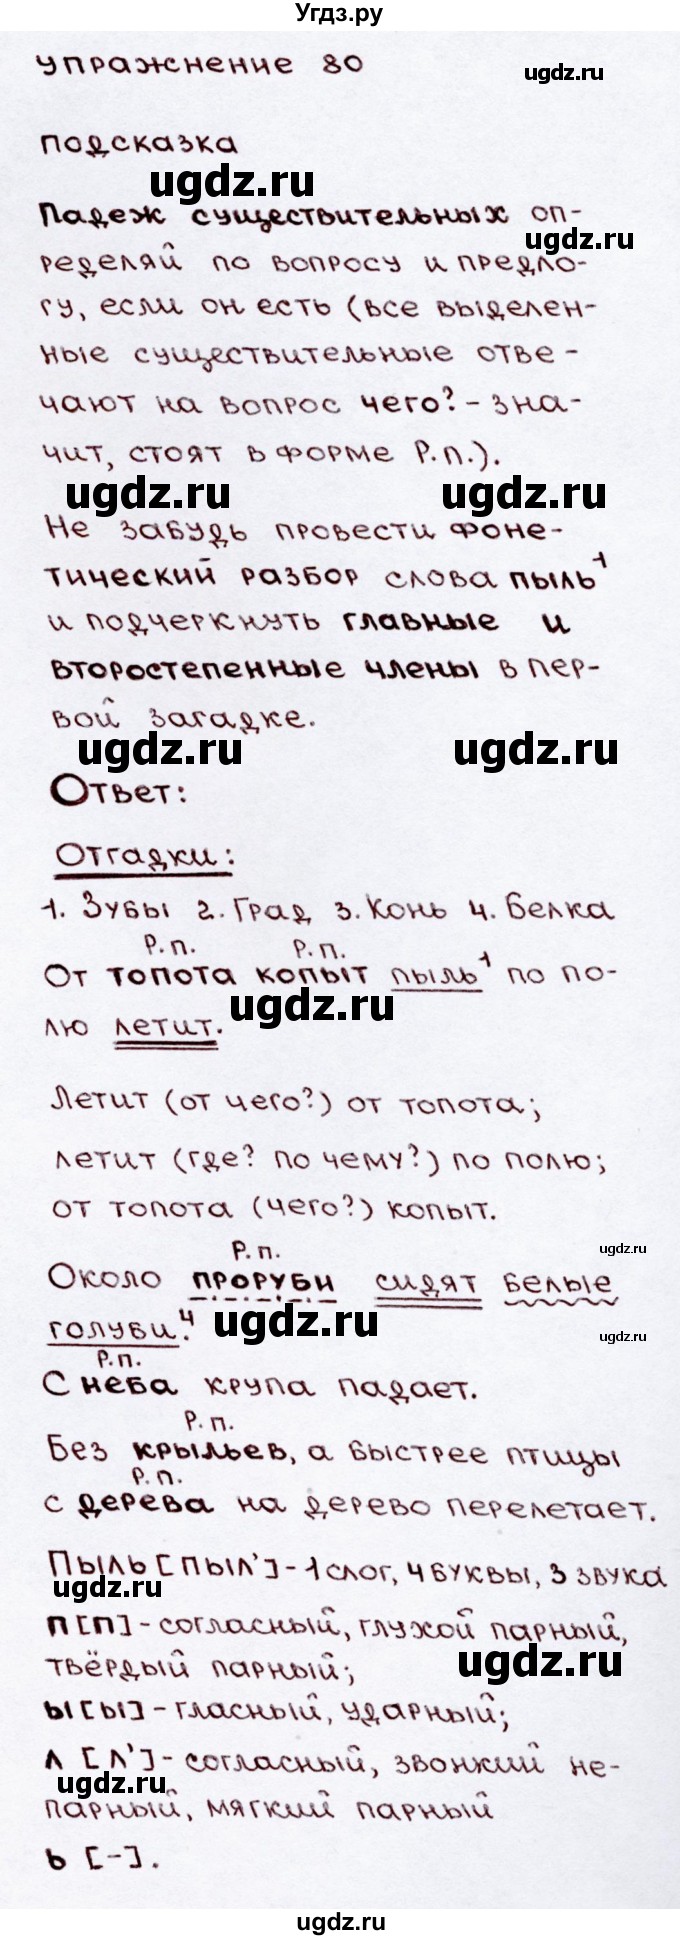 Угдз.ру
упражнение 80
ugdz.ru
подсказка
ugdz.ru
Падеж существительных оп-
ugdz.ru
ределяй по вопросу и предло-
гу, если он есть (все выделен-
ные существительные отве-
чают на вопрос чего? - зна-
чит, стоят в форме Р.п.).
ugdz.ru ugdz.ru
Не забудь провести фоне-
тический разбор слова пыль¹
и подчеркнуть главные и
второстепенные члены в пер-
вой загадке.
ugdz.ru ugdz.ru
Ответ:
Отгадки:
1. Зубы 2. Град 3. Конь 4. Белка
Р.п. Р.п.
От топота копыт пыль¹ по по-
ugdz.ru
лю летит.
Летит (от чего?) от топота;
летит (где? по чему?) по полю;
от топота (чего?) копыт.
Р.п. ugdz.ru
Около проруби сидят белые
голуби.⁴ ugdz.ru ugdz.ru
Р.п.
С неба крупа падает.
Р.п.
Без крыльев, а быстрее птицы
Р.п.
с дерева на дерево перелетает.
Пыль [пыл'] - 1 слог, 4 буквы, 3 звука
ugdz.ru
п [п] - согласный, глухой парный,
ugdz.ru
твёрдый парный;
ы [ы] - гласный, ударный;
л [л'] - согласный, звонкий не-
ugdz.ru
парный, мягкий парный
ь [-].
ugdz.ru